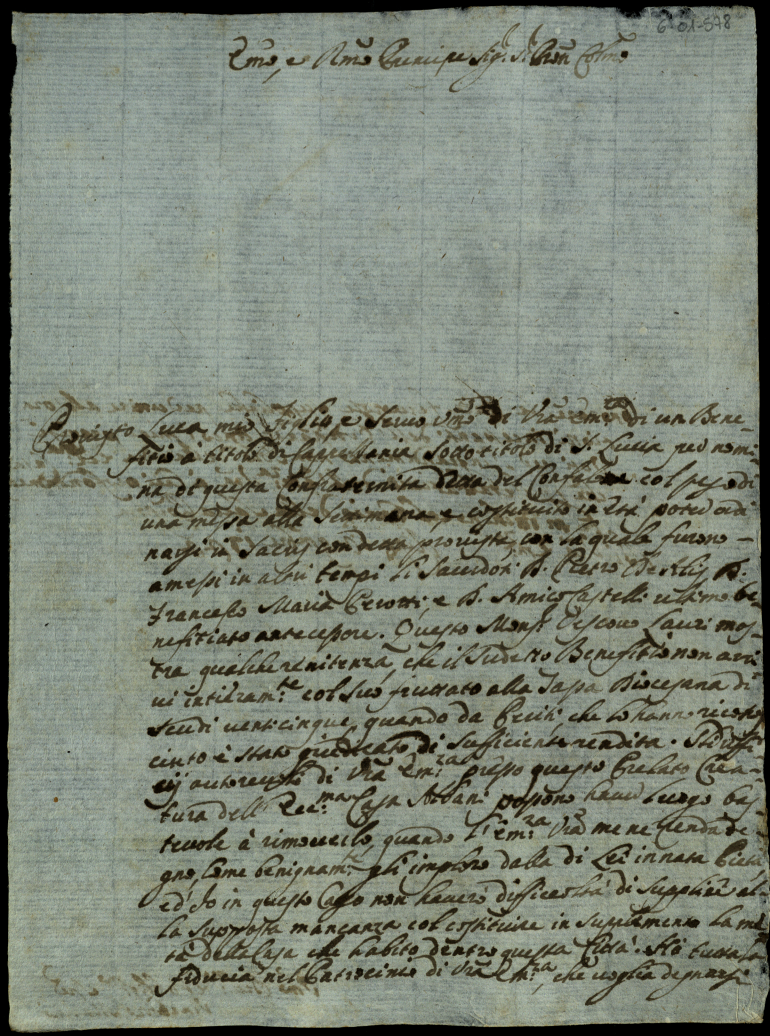 6-01-578
Emo, e Rmo Principe Sigr. Sr. Pron Colmo
Provisto Luca mio Figlio, e Servo Umo di Vra Emza di un Bene-
fitio à titolo di Cappellania sotto titolo di S. Lucia per nomi-
na di questa Confraternita detta del Confalone col peso di
una messa alla Settimana, e costituito in età poter ordi
narsi in Sacris con detta provista, con la quale furono
amessi in altri tempi li Sacerdoti D. Pietro D.
Francesco Maria Perotti, e D. Amico Castelli ultimo be-
nefitiato antecessore. Questo Monsr. Vescovo Lauri mos-
tra qualche renitenza, che il sudetto Benefitio non arri
vi intieramte. col suo fruttato alla Tassa Diocesana di
scudi venticinque, quando da Periti, che lo hanno ricono
ciuto è stato giudicato di sufficiente rendita. Gl' uffi-
cij autorevoli di Vra Emza. presso questo Prelato Crea-
tura dell' Eccma. Casa Albani possono haver luogo bas
tevole à rimoverlo, quando l' Emza Vra me ne renda de-
gno, come benignamte gli imploro dalla di Lei innata Pietà
ed' Io in questo Caso non haverò difficoltà di supplire al-
la supposta mancanza col costituire in supplimento la me
tà della Casa che habito dentro questa Città. Hò tutta la
fiducia nel Patrocinio di Vra Emza, che voglia degnarsi